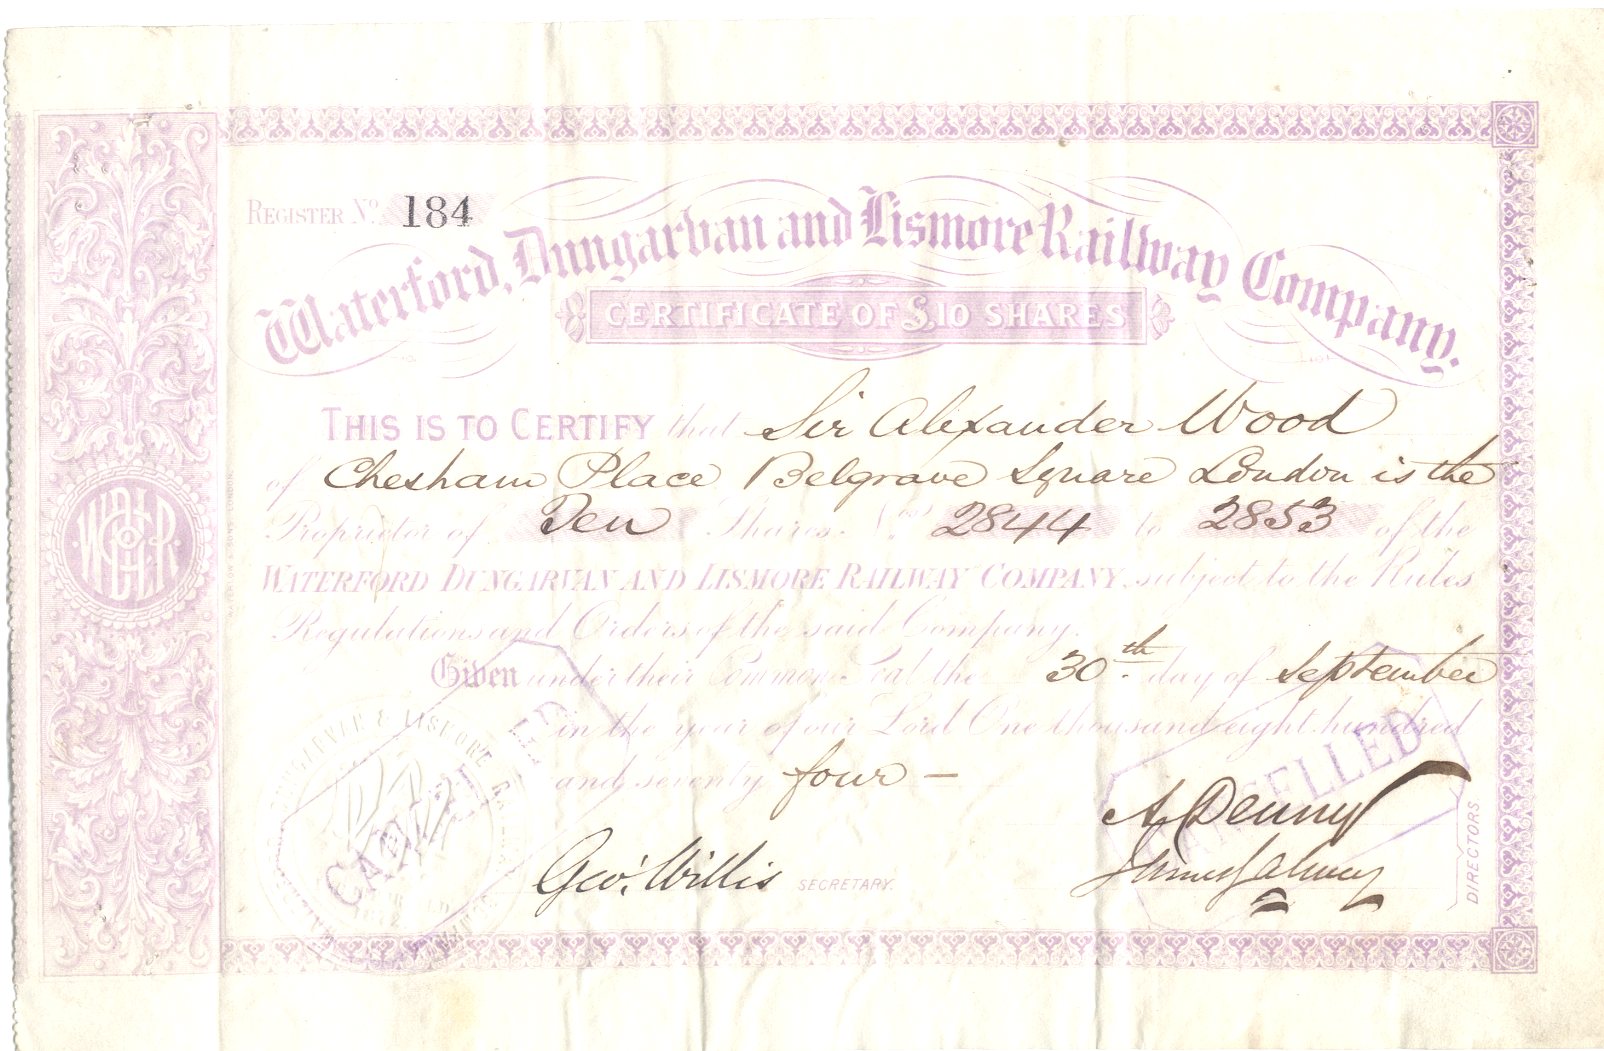 REGISTER No. 184
Waterford, Dungarvan and Lismore Railway Company.
CERTIFICATE OF £10 SHARES
THIS IS TO CERTIFY that Sir Alexander Wood
of Chesham Place Belgrave Square London is the
Proprietor of Ten Shares Nos. 2844 to 2853 of the
WATERFORD DUNGARVAN AND LISMORE RAILWAY COMPANY subject to the Rules
Regulations and Orders of the said Company.
Given under their Common Seal the 30th. day of September
in the year of our Lord One thousand eight hundred
and seventy four —
CANCELLED
CANCELLED
A Denny
Geo. Willis SECRETARY.
James
DIRECTORS
WATERLOW & SONS LONDON